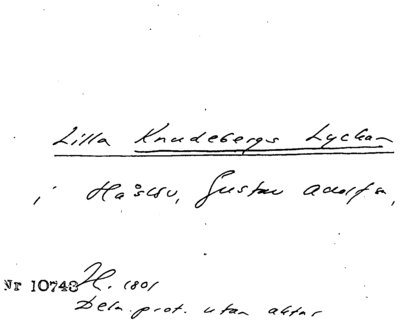 Lilla Knudebergs Lyckan
i Haslöv, Gustav Adolf sn,
Nr 10748 H. 1801
Dela. prot. utan aktar